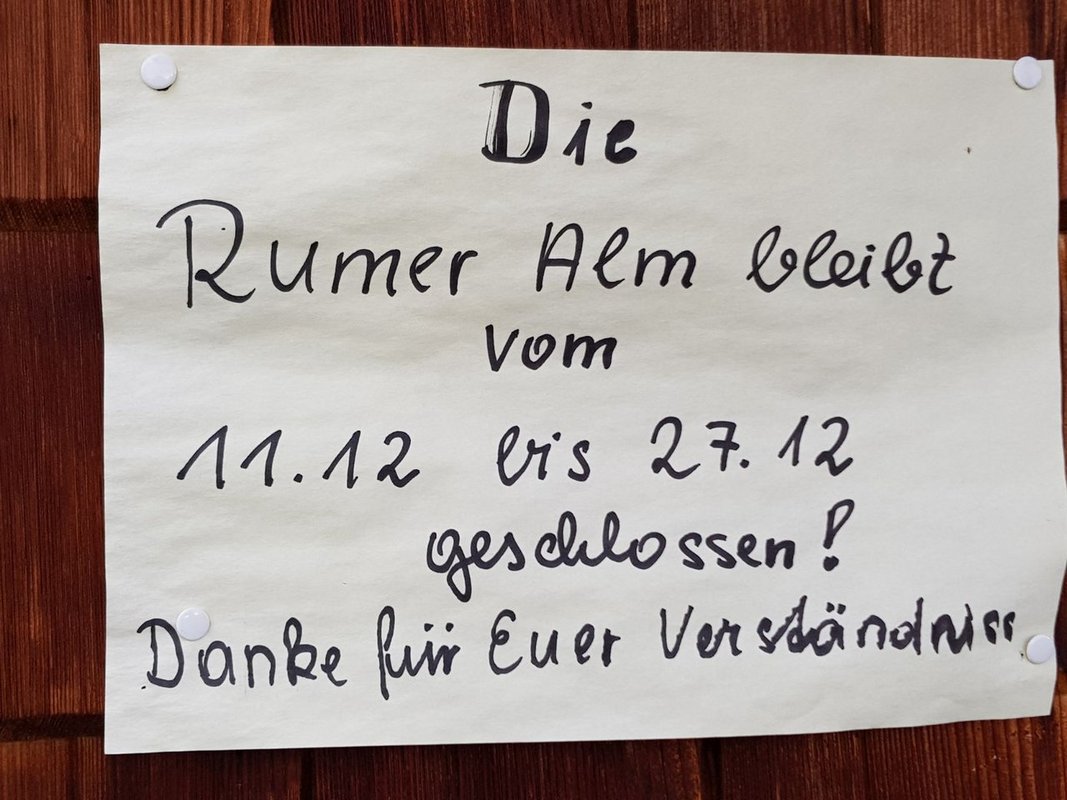 Die
Rumer Alm bleibt
vom
11.12 bis 27.12
geschlossen!
Danke für Euer Verständniss